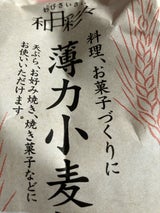 わびさいさい
和日彩
料理、お菓子づくりに
薄力小麦
天ぷら、お好み焼き、焼き菓子などに
お使いいただけます。